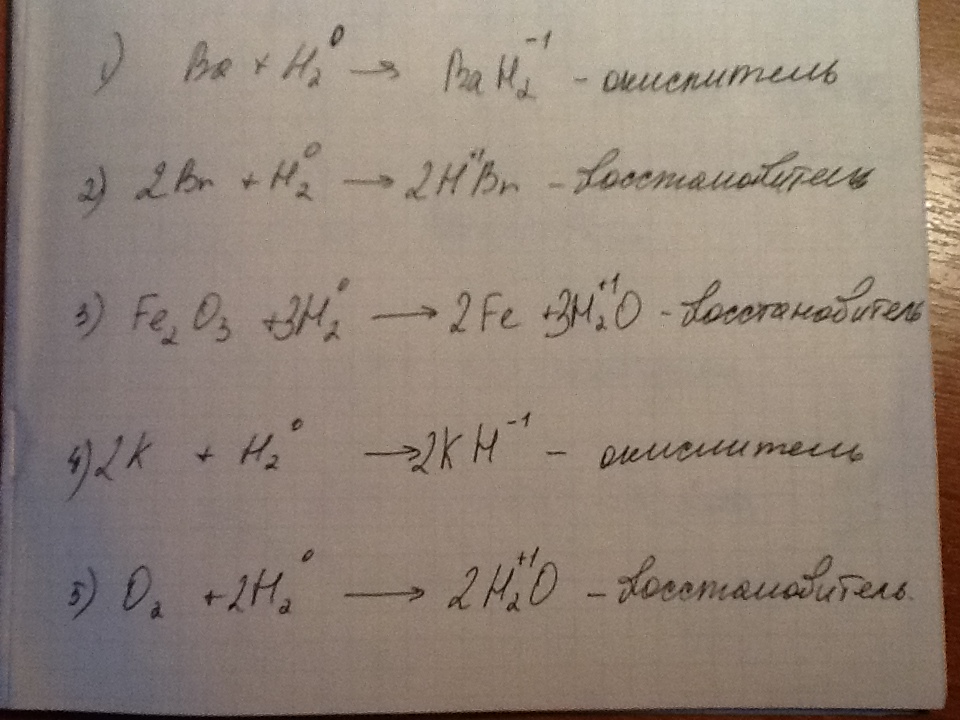 1) Ba + H₂⁰ → BaH₂⁻¹ - окислитель
2) 2Br + H₂⁰ → 2H⁺¹Br - восстановитель
3) Fe₂O₃ + 3H₂⁰ → 2Fe + 3H₂⁺¹O - восстановитель
4) 2K + H₂⁰ → 2KH⁻¹ - окислитель
5) O₂ + 2H₂⁰ → 2H₂⁺¹O - восстановитель.